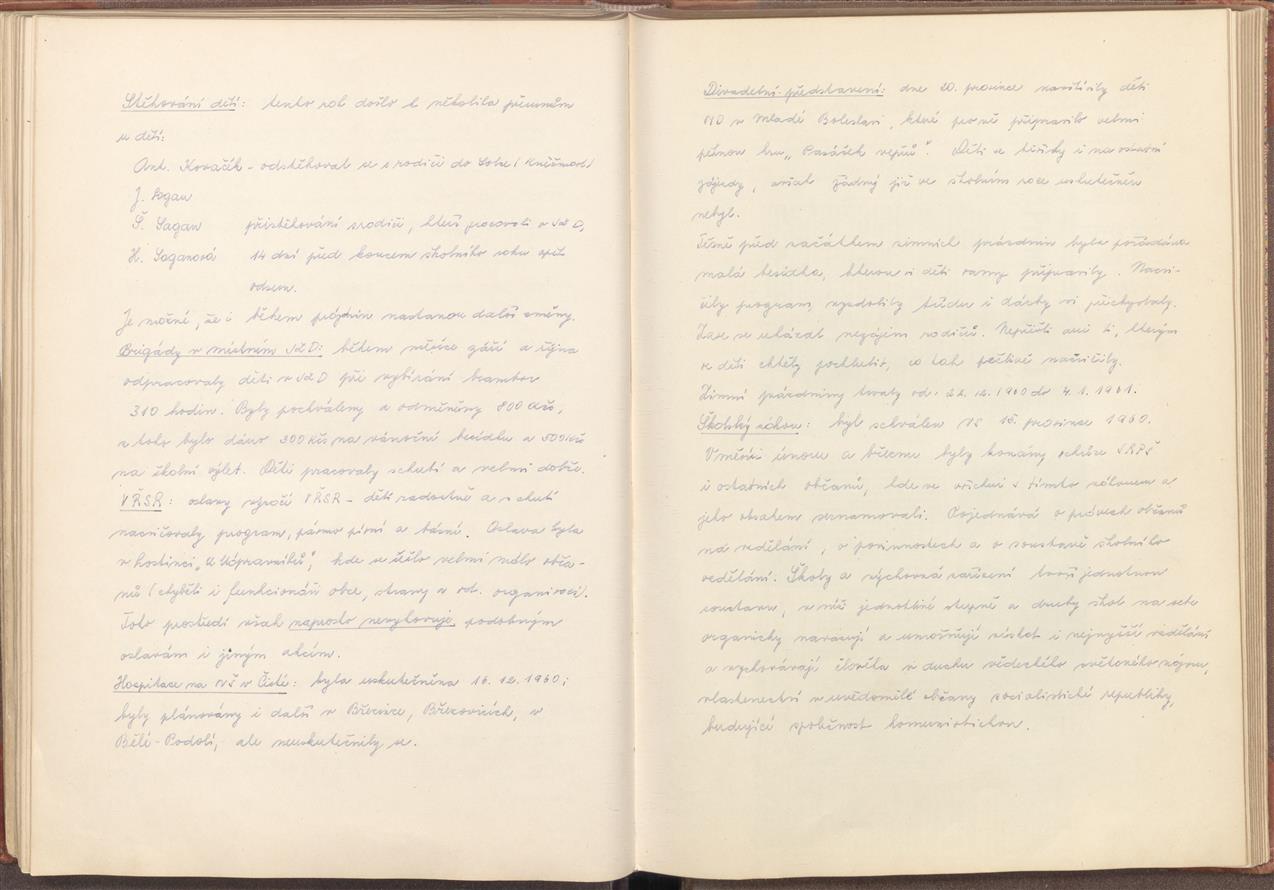 Stěhování dětí: tento rok došlo k několika přesunům
u dětí:
Ant. Kovačík - odstěhoval se s rodiči do
J. Sagan
Š. Sagan přistěhování s rodiči, kteří pracovali v JZD,
H. Saganová 14 dní před koncem školního roku opět
odsun.
Je možné, že i během prázdnin nastanou další změny.
Brigády v místním JZD: během měsíce září a října
odpracovaly děti v JZD při vybírání brambor
310 hodin. Byly pochváleny a odměněny 800 Kčs,
z toho bylo dáno 300 Kčs na vánoční besídku a 500 Kčs
na školní výlet. Děti pracovaly s chutí a velmi dobře.
VŘSR: oslavy výročí VŘSR - děti radostně a s chutí
nacvičovaly program, pásmo písní a básní. Oslava byla
v hostinci „U Kopravníků", kde se sešlo velmi málo obča-
nů (chyběli i funkcionáři obce, strany a od. organisací).
Toto prostředí však naprosto nevyhovuje podobným
oslavám i jiným akcím.
Hospitace na NŠ v Čisté: byla uskutečněna 16. 12. 1960;
byly plánovány i další v Březince, Březovicích, v
Bělé - Podolí, ale neuskutečnily se.
Divadelní představení: dne 20. prosince navštívily děti
MD v Mladé Boleslavi, které pro ně připravilo velmi
pěknou hru „Pasáček vepřů". Děti se těšily i na ostatní
zájezdy, avšak žádný již ve školním roce uskutečněn
nebyl.
Těsně před začátkem zimních prázdnin byla pořádána
malá besídka, kterou si děti samy připravily. Nacvi-
čily program, vyzdobily třídu i dárky si přichystaly.
Zase se ukázal nezájem rodičů. Nepřišli ani ti, kterým
se děti chtěly pochlubit, co tak pečlivě nacvičily.
Zimní prázdniny trvaly od 22. 12. 1960 do 4. 1. 1961.
Školský zákon: byl schválen NS 15. prosince 1960.
V měsíci únoru a březnu byly konány schůze SRPŠ
i ostatních občanů, kde se všichni s tímto zákonem a
jeho obsahem seznamovali. Pojednává o právech občanů
na vzdělání, o povinnostech a o soustavě školního
vzdělání. Školy a výchovná zařízení tvoří jednotnou
soustavu, v níž jednotlivé stupně a druhy škol na sebe
organicky navazují a umožňují získat i nejvyšší vzdělání
a vychovávají člověka v duchu vědeckého světového názoru,
vlastenectví a uvědomělé občany socialistické republiky,
budující společnost komunistickou.